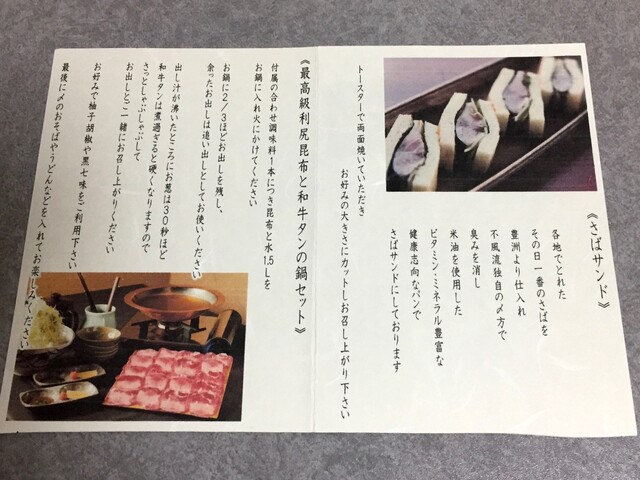 《さばサンド》
各地でとれた
その日一番のさばを
豊洲より仕入れ
不風流独自の〆方で
臭みを消し
米油を使用した
ビタミン・ミネラル豊富な
健康志向なパンで
さばサンドにしております
トースターで両面焼いていただき
お好みの大きさにカットしお召し上がり下さい
《最高級利尻昆布と和牛タンの鍋セット》
付属の合わせ調味料1本につき昆布と水1.5Lを
お鍋に入れ火にかけてください
お鍋に2/3ほどお出しを残し、
余ったお出しは追い出しとしてお使いください
出し汁が沸いたところにお葱は30秒ほど
和牛タンは煮過ぎると硬くなりますので
さっとしゃぶしゃぶして
お出しとご一緒にお召し上がりください
お好みで柚子胡椒や黒七味をご利用下さい
最後に〆のおそばやうどんなどを入れてお楽しみください